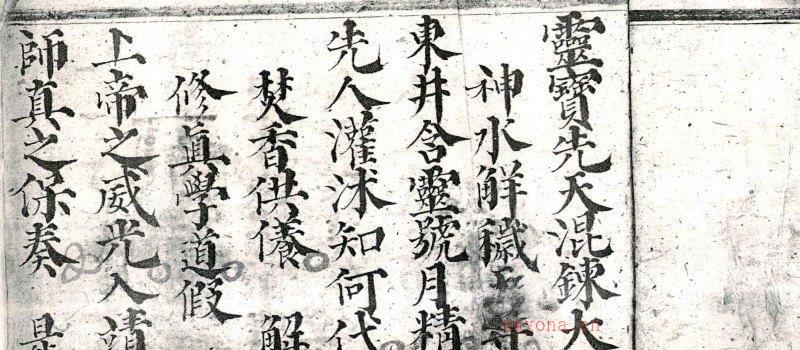 靈寶先天混鍊大
神水解穢
東井含靈號月精
先人灌沐知何代
焚香供養 解
修眞學道假
上帝之威光入靖
師真之保奏
nayona.cn